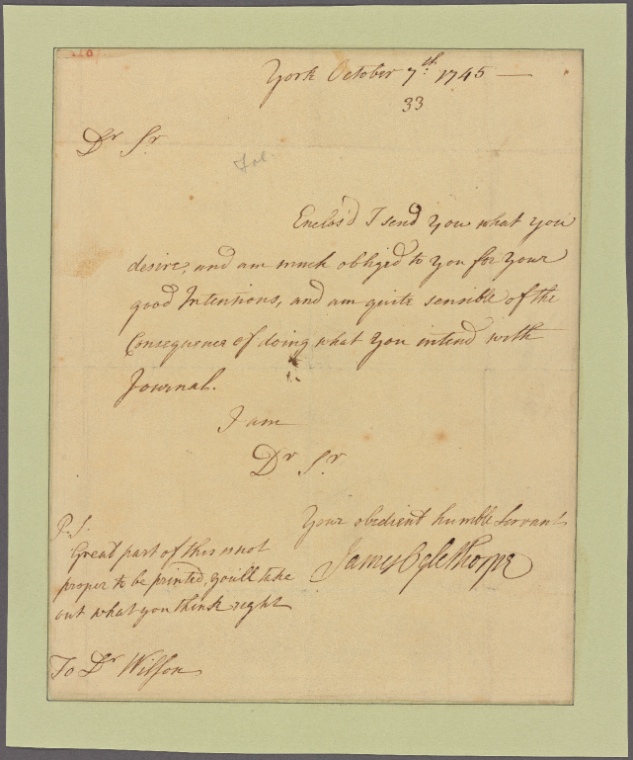 York October 7th. 1745 —
33
Dr Sr
Fol.
Enclos'd I send you what you
desire, and am much obliged to you for your
good Intentions, and am quite sensible of the
Consequence of doing what you intend with
Journal.
I am
Dr Sr
Your obedient humble Servant
James Oglethorpe
P.S.
Great part of this is not
proper to be printed, you'll take
out what you think right
To Dr Wilson